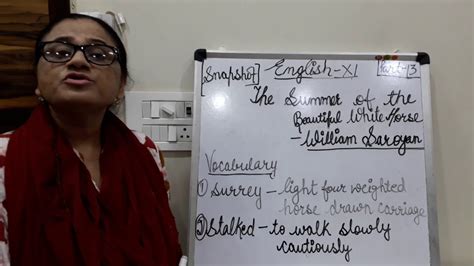 [Snapshot] English-XI Part-13
The Summer of the
Beautiful White Horse
- William Saroyan
Vocabulary
① Surrey - light four weighted
horse drawn carriage
② Stalked - to walk slowly
cautiously